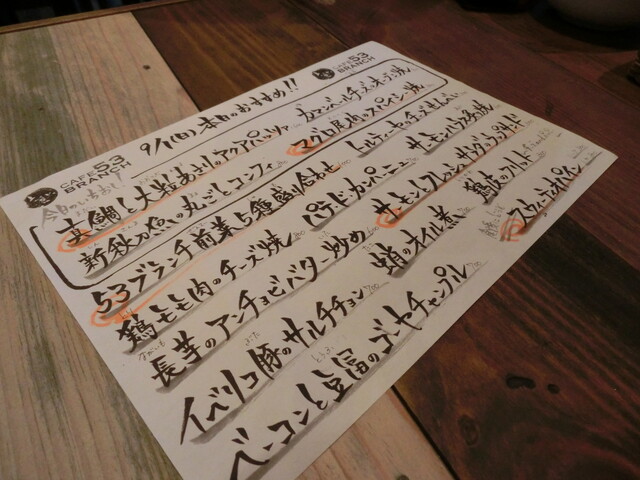 CAFE 53 BRANCH
9/1(日) 本日のおすすめ!!
CAFE 53 BRANCH
真鯛と大粒あさりのアクアパッツァ
カマンベールチーズのオーブン焼
新秋刀魚の丸ごとコンフィ
マグロ尾肉のスパイシー焼
53ブランチ前菜5種盛り合わせ
トルティーヤのチーズせんべい
鶏もも肉のチーズ焼
パテドカンパーニュ
サーモンハラス塩焼
長芋のアンチョビバター炒め
サーモンとフレッシュサラダのラップサンド
イベリコ豚のサルチチョン
蛸のオイル煮
鶏皮のフリット
ベーコンと豆腐のゴーヤチャンプル
スウィーティオパイン